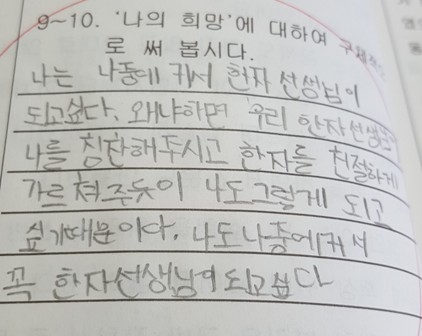 9~10. '나의 희망'에 대하여 구체적으
로 써 봅시다.
나는 나중에 커서 한자 선생님이
되고싶다. 왜냐하면 우리 한자선생님이
나를 칭찬해주시고 한자를 친절하게
가르쳐주듯이 나도그렇게 되고
싶기때문이다. 나도나중에커서
꼭 한자선생님이되고싶다